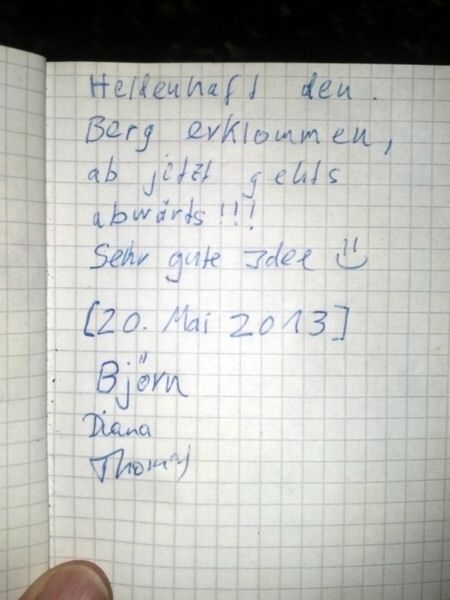 Heldenhaft den
Berg erklommen,
ab jetzt gehts
abwärts!!!
Sehr gute Idee
[20. Mai 2013]
Björn
Diana
Thomy